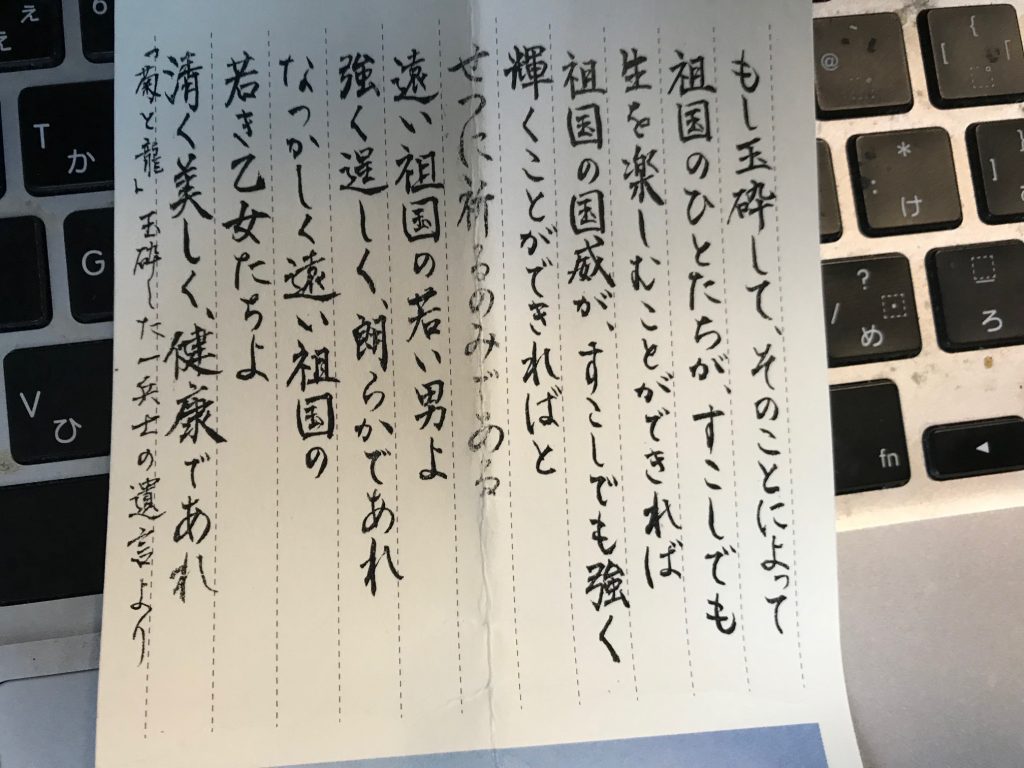 もし玉砕して、そのことによって
祖国のひとたちが、すこしでも
生を楽しむことができれば
祖国の国威が、すこしでも強く
輝くことができればと
せつに祈るのみである
遠い祖国の若い男よ
強く逞しく、朗らかであれ
なつかしく遠い祖国の
若き乙女たちよ
清く美しく、健康であれ
「菊と龍」玉砕した一兵士の遺言より
ぇ
え
T
か
G
V
ひ
@
{
[
「
*
け
}
]
?
/
め
ろ
fn
◀